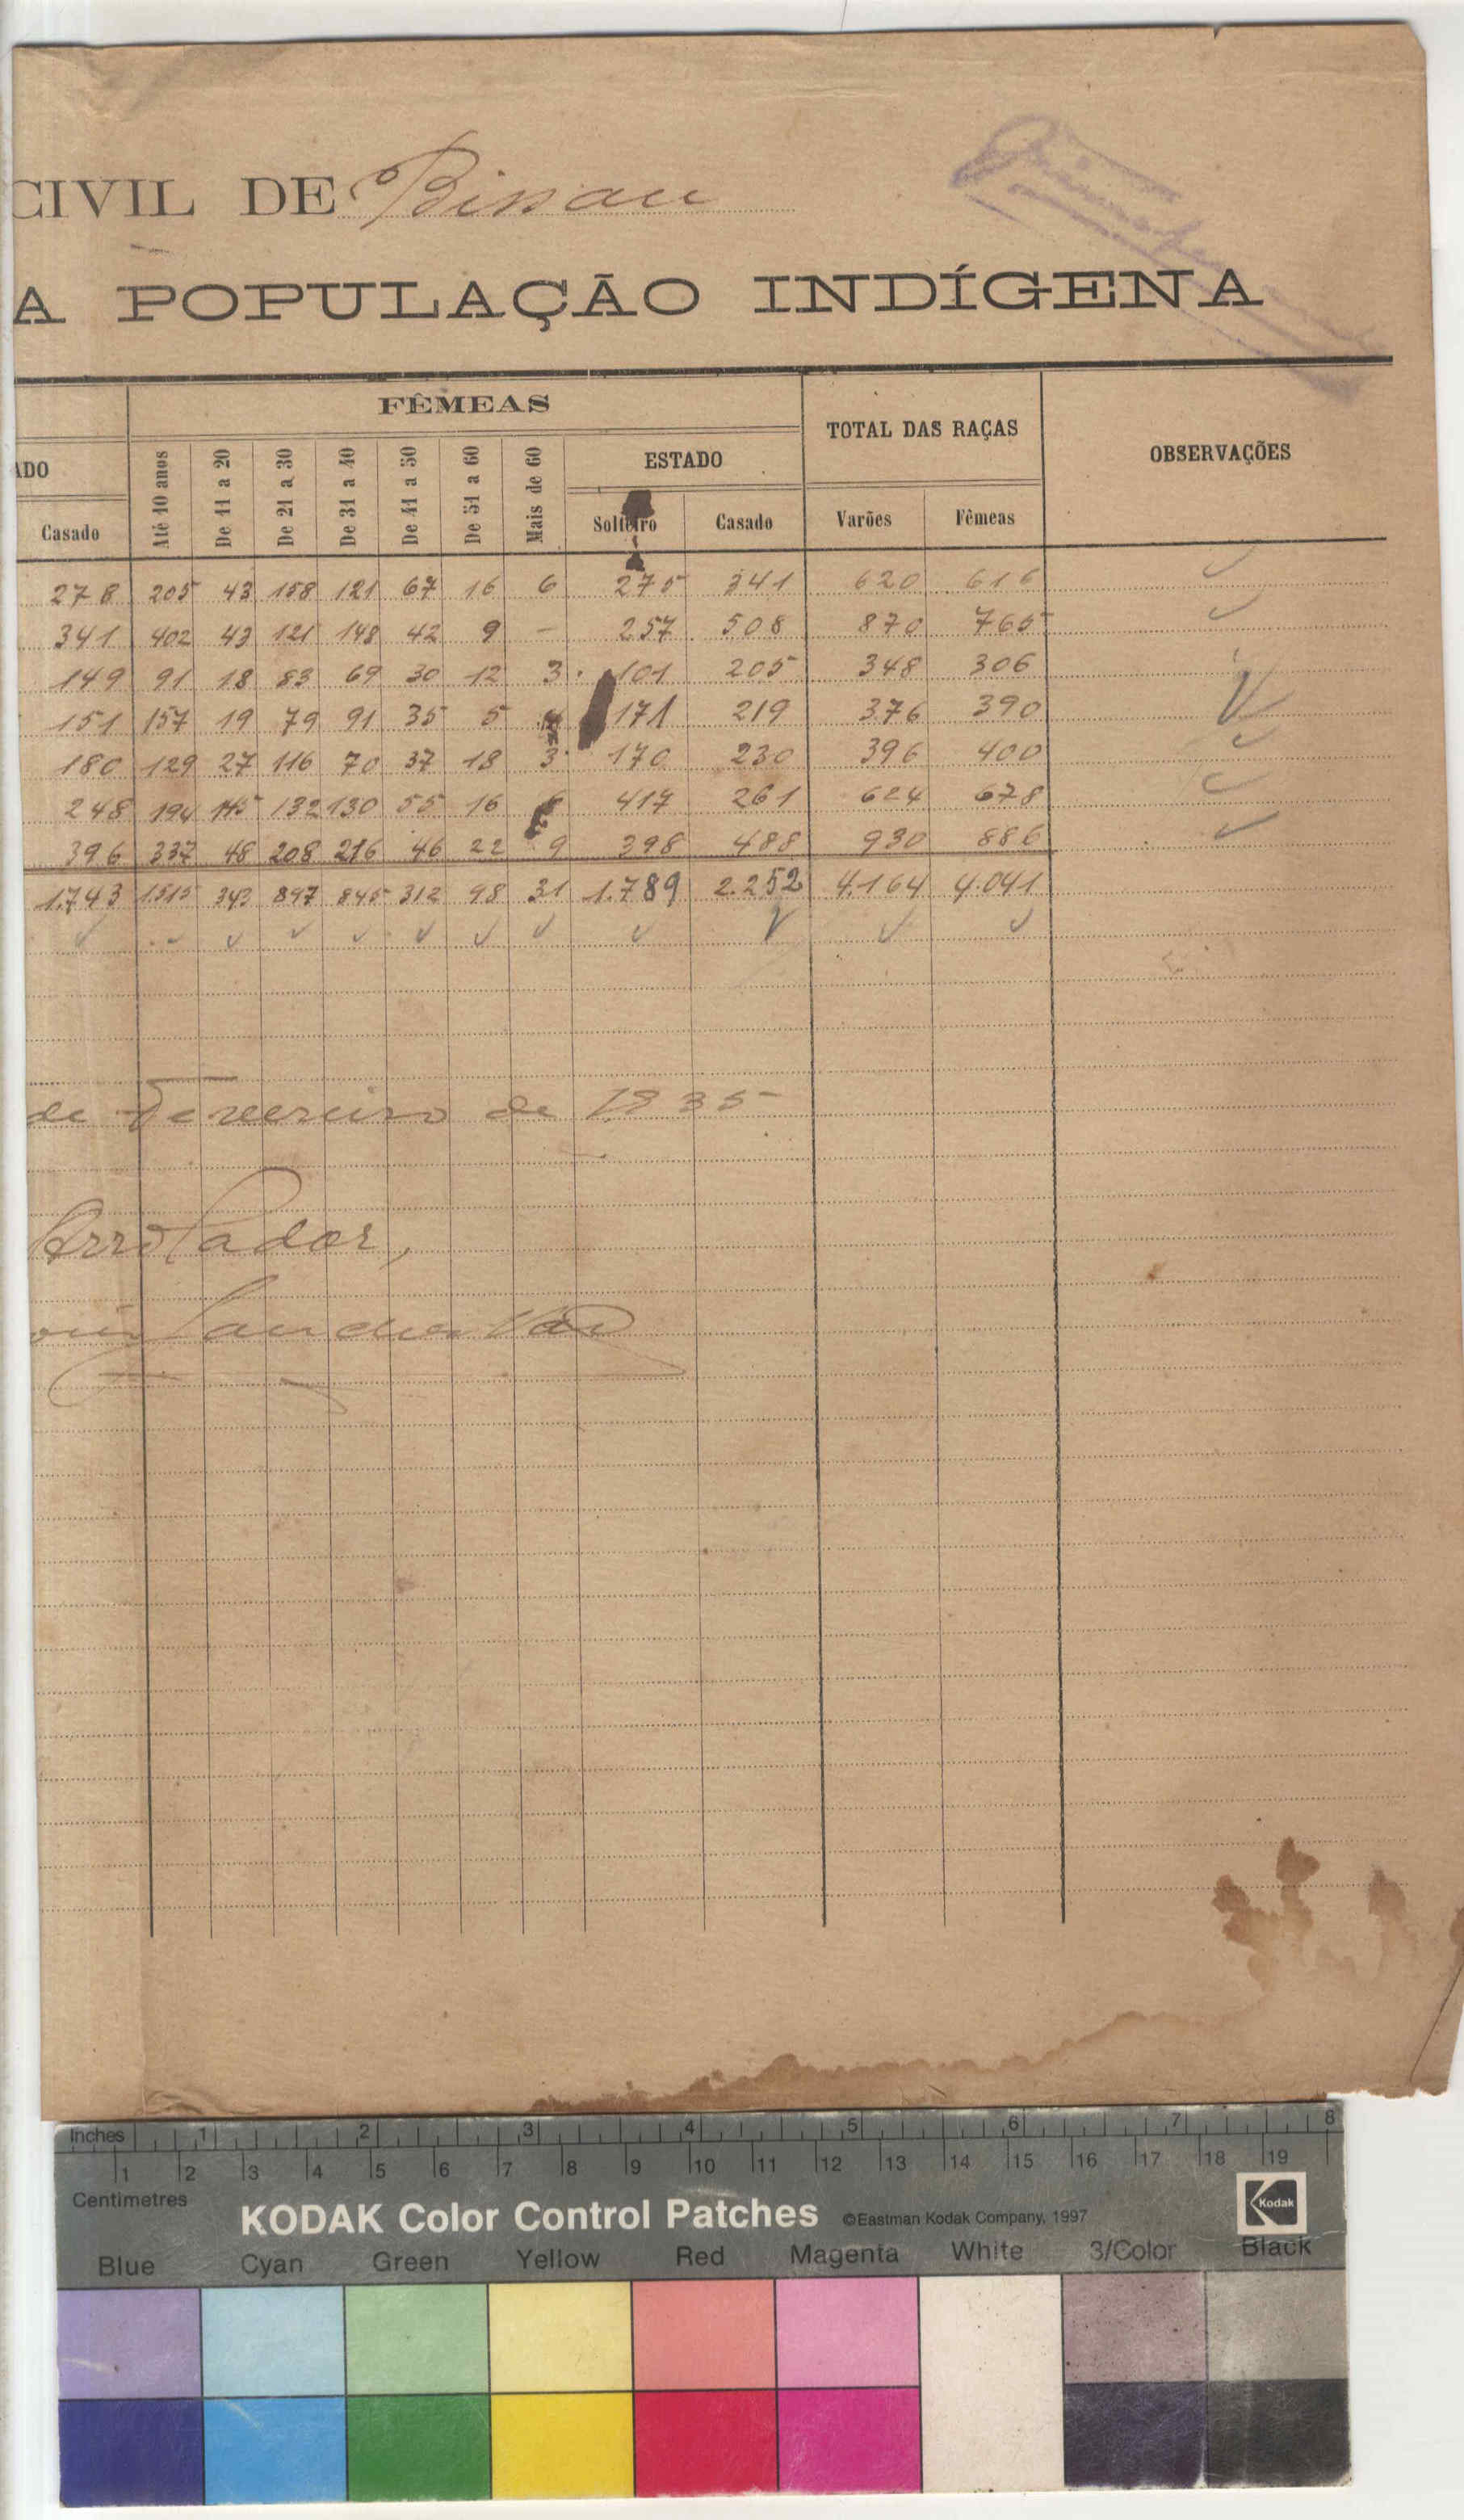 CIVIL DE Bissau
A POPULAÇÃO INDÍGENA
FÊMEAS
TOTAL DAS RAÇAS
OBSERVAÇÕES
ADO
ESTADO
Casado Até 10 anos De 11 a 20 De 21 a 30 De 31 a 40 De 41 a 50 De 51 a 60 Mais de 60 Solteiro Casado Varões Fêmeas
278 205 43 158 121 67 16 6 275 341 620 616
341 402 43 121 148 42 9 - 257 508 870 765
149 91 18 83 69 30 12 3 101 205 348 306
151 157 19 79 91 35 5 4 171 219 376 390
180 129 27 116 70 37 18 3 170 230 396 400
248 194 145 132 130 55 16 6 417 261 624 678
396 337 48 208 216 46 22 9 398 488 930 886
1.743 1.515 343 897 845 312 98 31 1.789 2.252 4.164 4.041
de Fevereiro de 1935
Arrolador,
Inches 1 2 3 4 5 6 7 8
1 2 3 4 5 6 7 8 9 10 11 12 13 14 15 16 17 18 19
Centimetres
KODAK Color Control Patches ©Eastman Kodak Company, 1997 Kodak
Blue Cyan Green Yellow Red Magenta White 3/Color Black